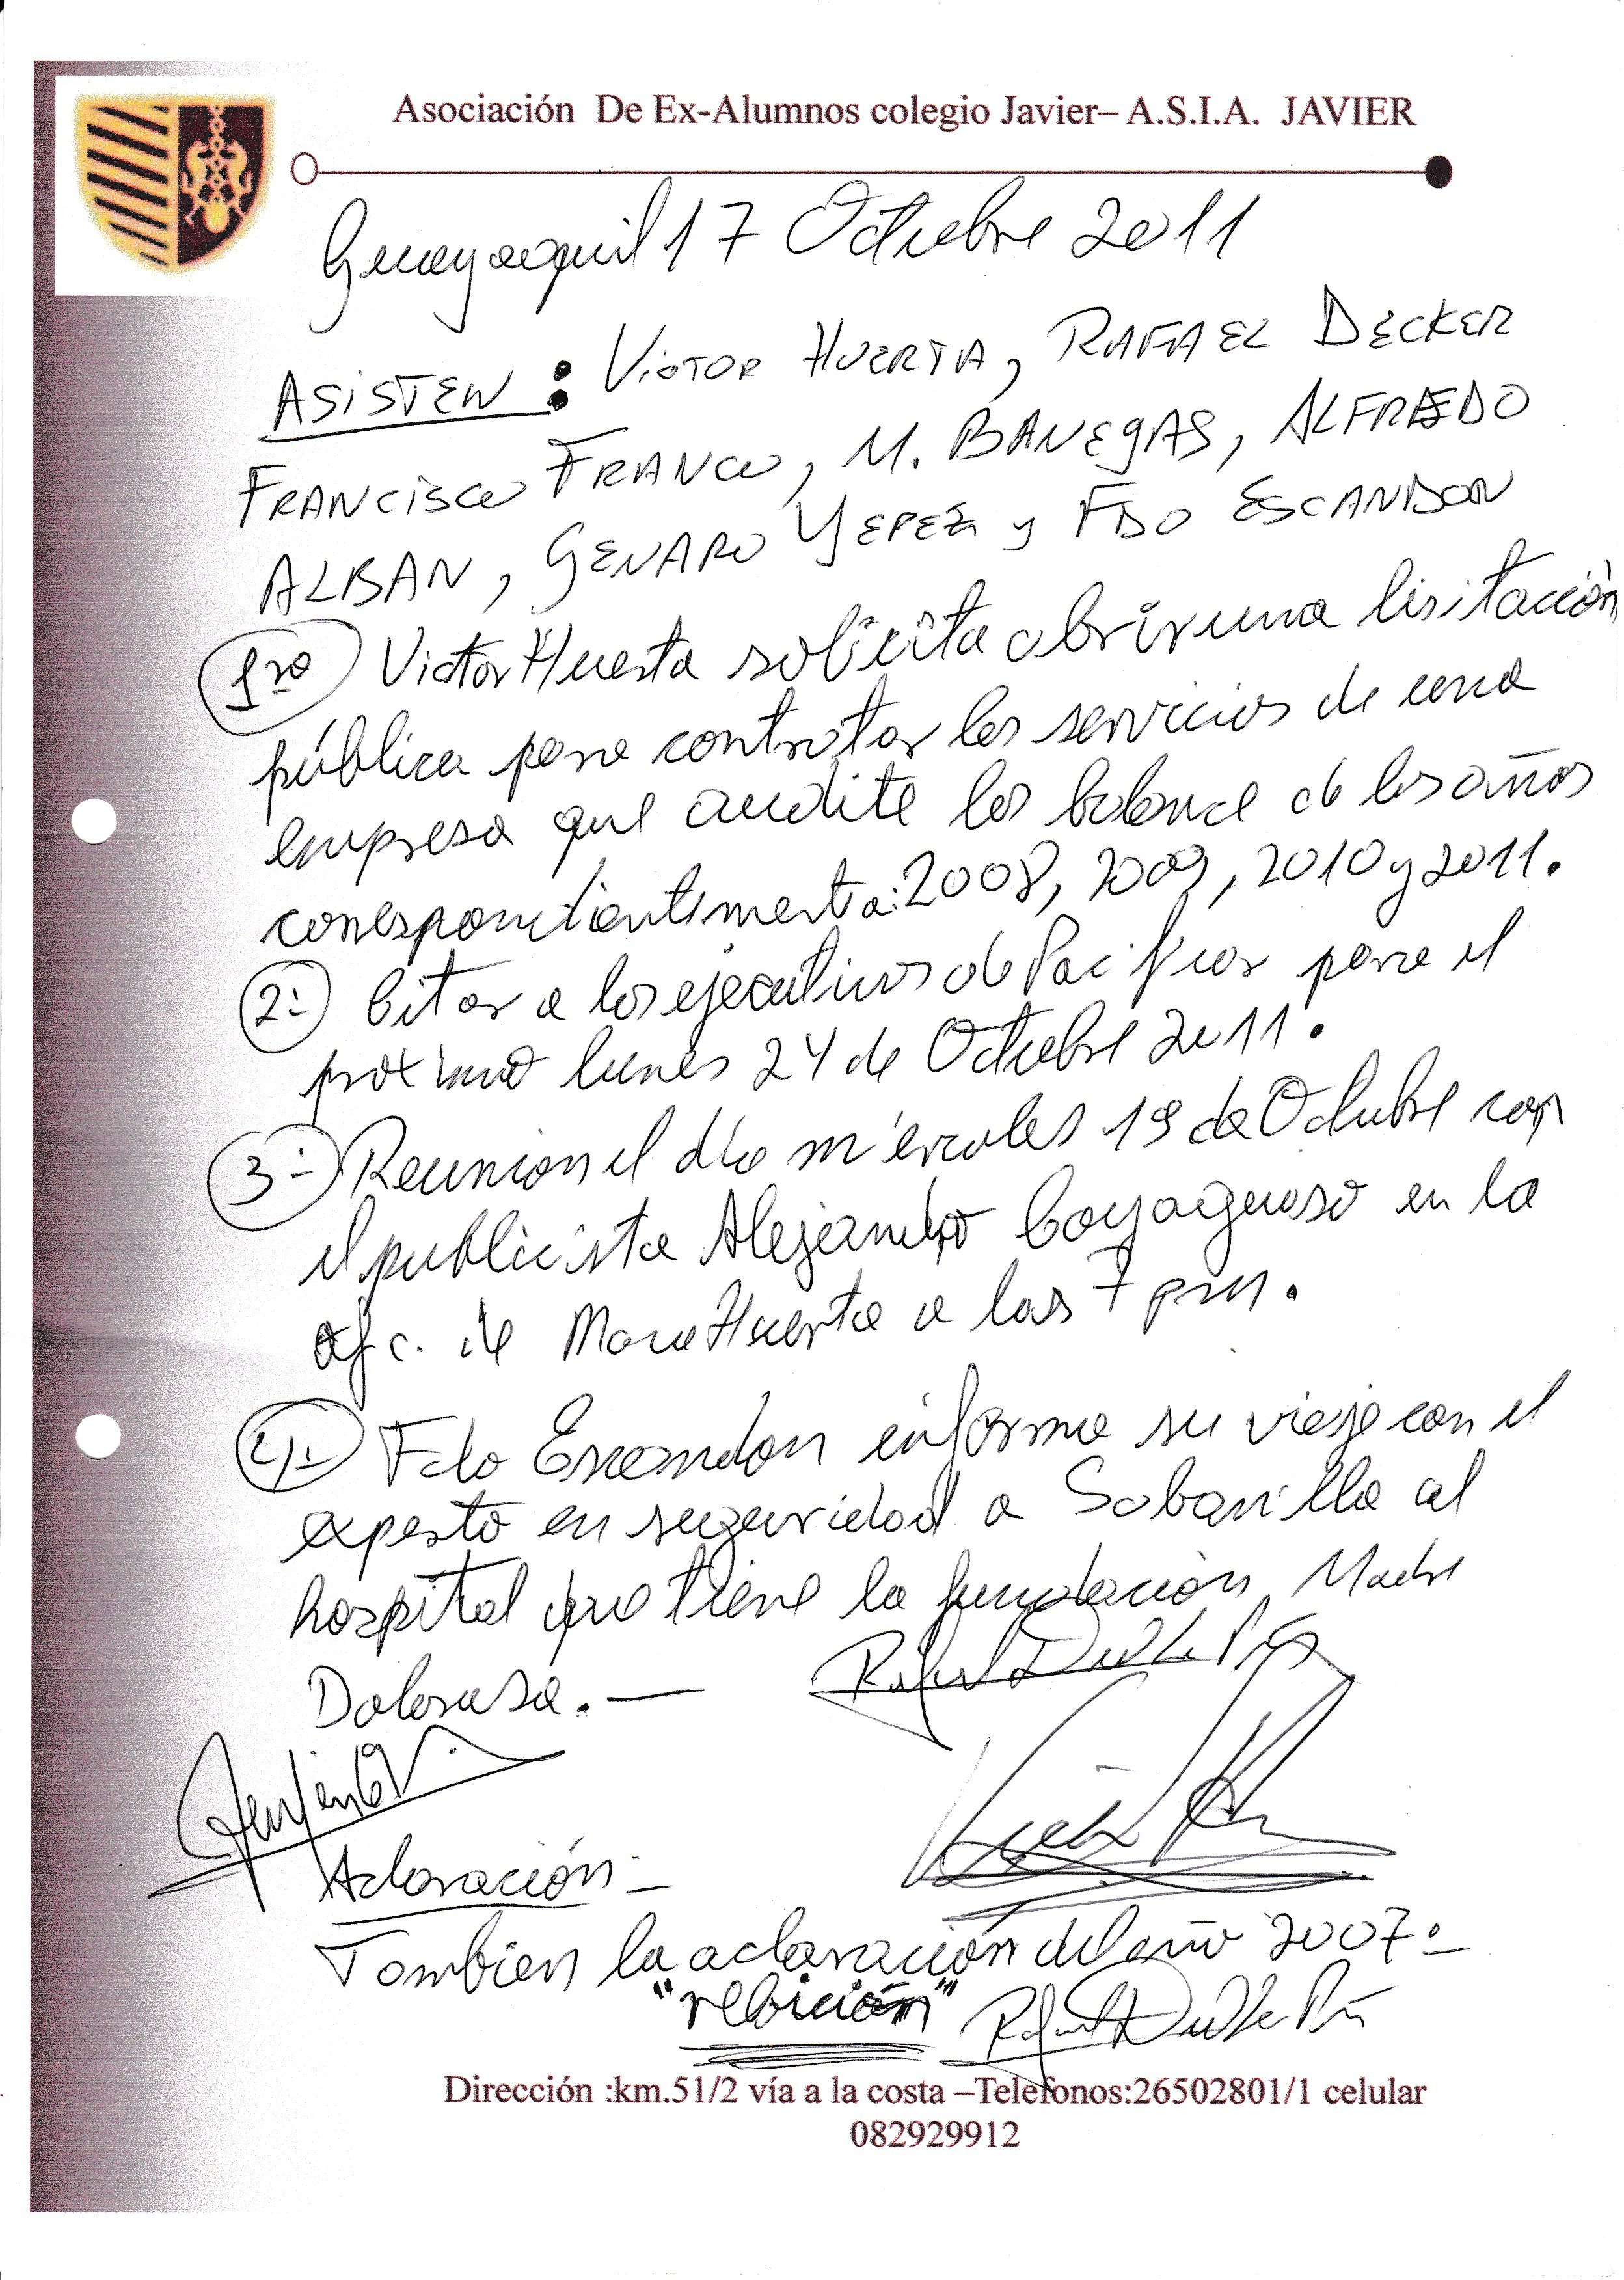 Asociación De Ex-Alumnos colegio Javier– A.S.I.A. JAVIER
Guayaquil 17 Octubre 2011
ASISTEN : VICTOR HUERTA, RAFAEL DECKER
FRANCISCO FRANCO, M. BANEGAS, ALFREDO
ALBAN, GENARO YEPEZ y FDO ESCANDON
1ro Victor Huerta solicita abrir una lisitación
pública para contratar los servicios de una
empresa que audite los balance de los años
correspondientemente a: 2008, 2009, 2010 y 2011.
2:- Citar a los ejecutivos de Pacificar para el
próximo lunes 24 de Octubre 2011.
3:- Reunion el día miércoles 19 de Octubre con
el publicista Alejandro Coyaguaso en la
ofc. de Mara Huerta a las 7 pm.
4:- Fdo Escandon informa su viaje con el
experto en seguridad a Sabanilla al
hospital que tiene la fundación Madre
Dolorosa.—
Aclaración:-
Tambien la aclaración del año 2007:-
"
"
Dirección :km.51/2 vía a la costa –Telefonos:26502801/1 celular
082929912